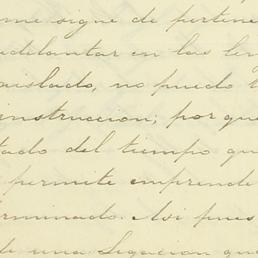 me sigue de pertene
adelantar en las len
aislado, no puedo t
instruccion; porque
tado del tiempo qu
permite emprende
minado. Asi pues
de una Legacion que